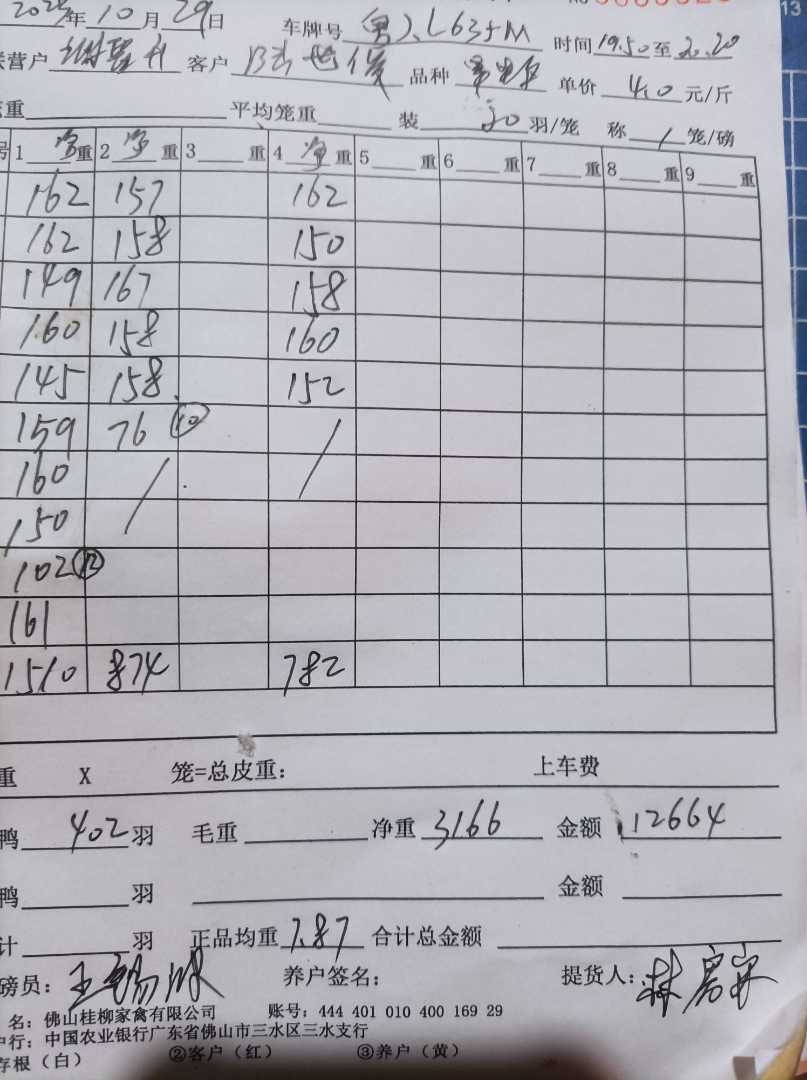 年 10 月 29 日 车牌号 L635M 时间 19.50 至 20.20
联营户 客户 品种 单价 4.0 元/斤
重 平均笼重 装 20 羽/笼 称 1 笼/磅
号 1 净 重 2 净 重 3 重 4 净 重 5 重 6 重 7 重 8 重 9 重
162 157 162
162 158 150
149 167 158
160 158 160
145 158 152
159 76 ⑩ /
160 /
150
102 ⑫
161
1510 874 782
重 X 笼=总皮重： 上车费
鸭 402 羽 毛重 净重 3166 金额 12664
鸭 羽 金额
计 羽 正品均重 7.87 合计总金额
磅员： 养户签名： 提货人：
名：佛山桂柳家禽有限公司 账号：444 401 010 400 169 29
户行：中国农业银行广东省佛山市三水区三水支行
存根（白） ②客户（红） ③养户（黄）
13